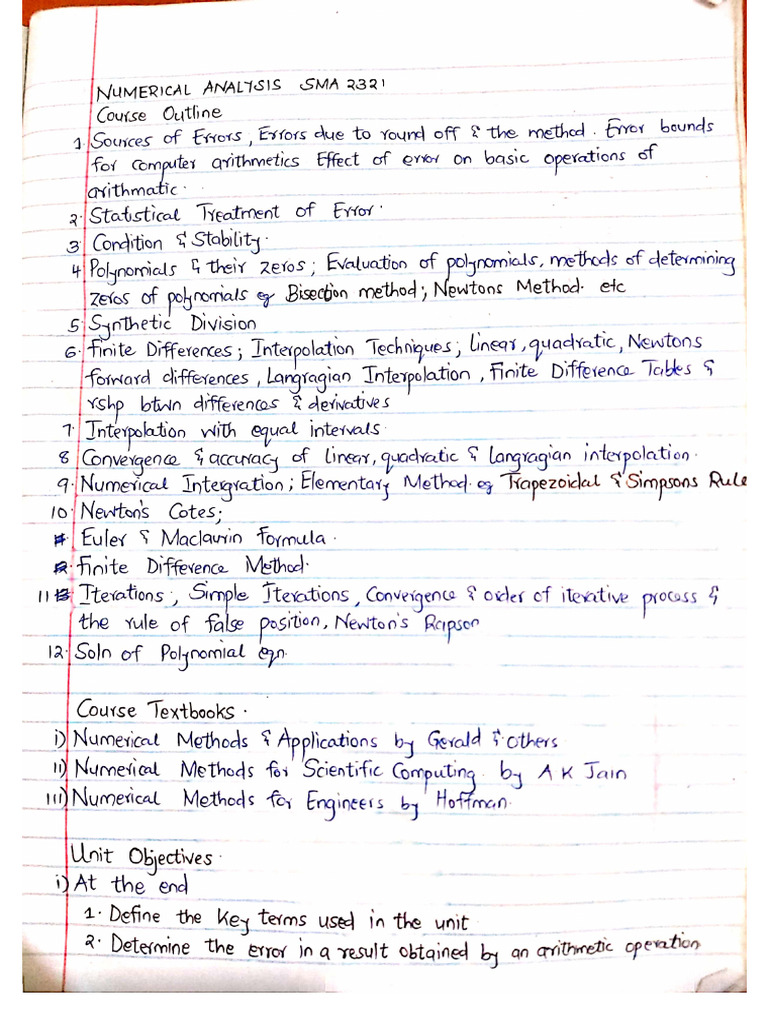 NUMERICAL ANALYSIS SMA 2321
Course Outline
1. Sources of Errors, Errors due to round off & the method. Error bounds
for computer arithmetics Effect of error on basic operations of
arithmatic.
2. Statistical Treatment of Error.
3. Condition & Stability.
4 Polynomials & their zeros; Evaluation of polynomials, methods of determining
zeros of polynomials eg Bisection method; Newtons Method. etc
5. Synthetic Division
6. Finite Differences; Interpolation Techniques; linear, quadratic, Newtons
forward differences, Langragian Interpolation, Finite Difference Tables &
rshp btwn differences & derivatives
7. Interpolation with equal intervals.
8 Convergence & accuracy of linear, quadratic & Langragian interpolation.
9. Numerical Intergration; Elementary Method. eg Trapezoidal & Simpsons Rule
10. Newton's Cotes;
Euler & Maclaurin Formula.
Finite Difference Method.
11 Iterations, Simple Iterations, Convergence & order of iterative process &
the rule of false position, Newton's Rapson
12. Soln of Polynomial eqn.
Course Textbooks.
i) Numerical Methods & Applications by Gerald & others
ii) Numerical Methods for Scientific Computing. by A K Jain
iii) Numerical Methods for Engineers by Hoffman.
Unit Objectives.
i) At the end
1. Define the key terms used in the unit
2. Determine the error in a result obtained by an arithmetic operation